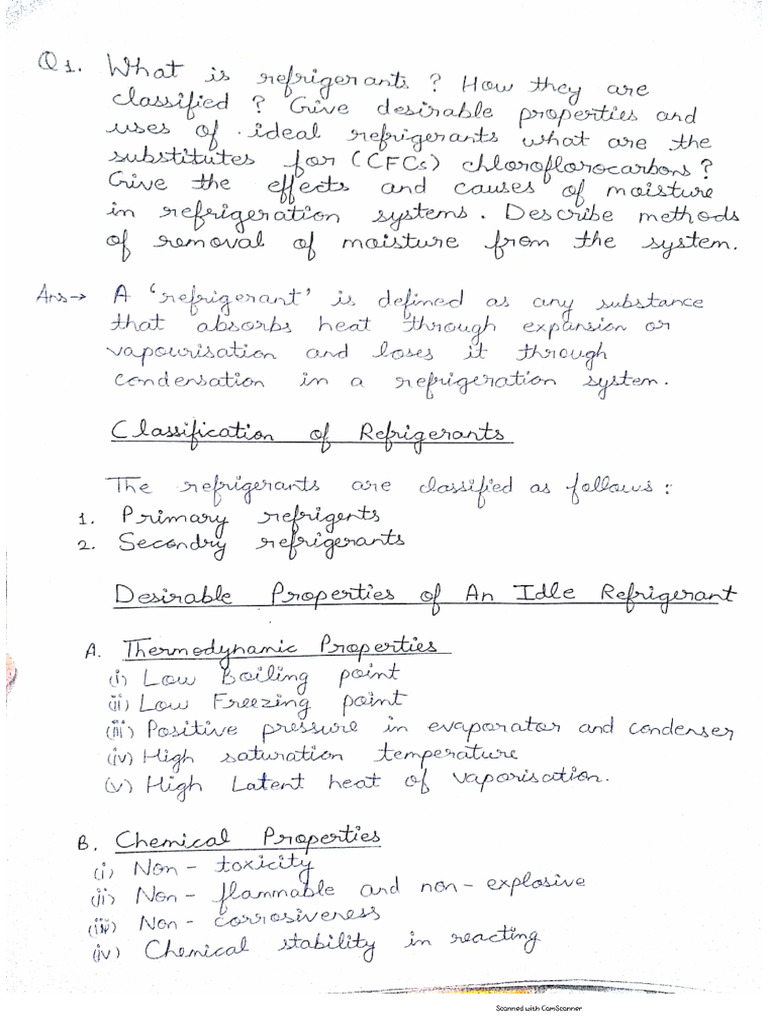 Q1. What is refrigerants ? How they are
classified ? Give desirable properties and
uses of ideal refrigerants what are the
substitutes for (CFCs) chloroflorocarbons ?
Give the effects and causes of moisture
in refrigeration systems. Describe methods
of removal of moisture from the system.
Ans→ A 'refrigerant' is defined as any substance
that absorbs heat through expansion or
vapourisation and loses it through
condensation in a refrigeration system.
Classification of Refrigerants
The refrigerants are classified as follows :
1. Primary refrigents
2. Secondry refrigerants
Desirable Properties of An Idle Refrigerant
A. Thermodynamic Properties
(i) Low Boiling point
(ii) Low Freezing point
(iii) Positive pressure in evaporator and condenser
(iv) High saturation temperature
(v) High Latent heat of vaporisation.
B. Chemical Properties
(i) Non - toxicity
(ii) Non - flammable and non - explosive
(iii) Non - corrosiveress
(iv) Chemical stability in reacting
Scanned with CamScanner